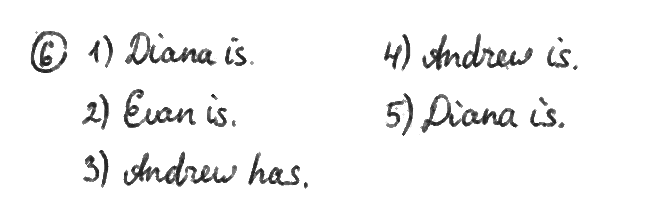 6 1) Diana is.
2) Evan is.
3) Andrew has.
4) Andrew is.
5) Diana is.